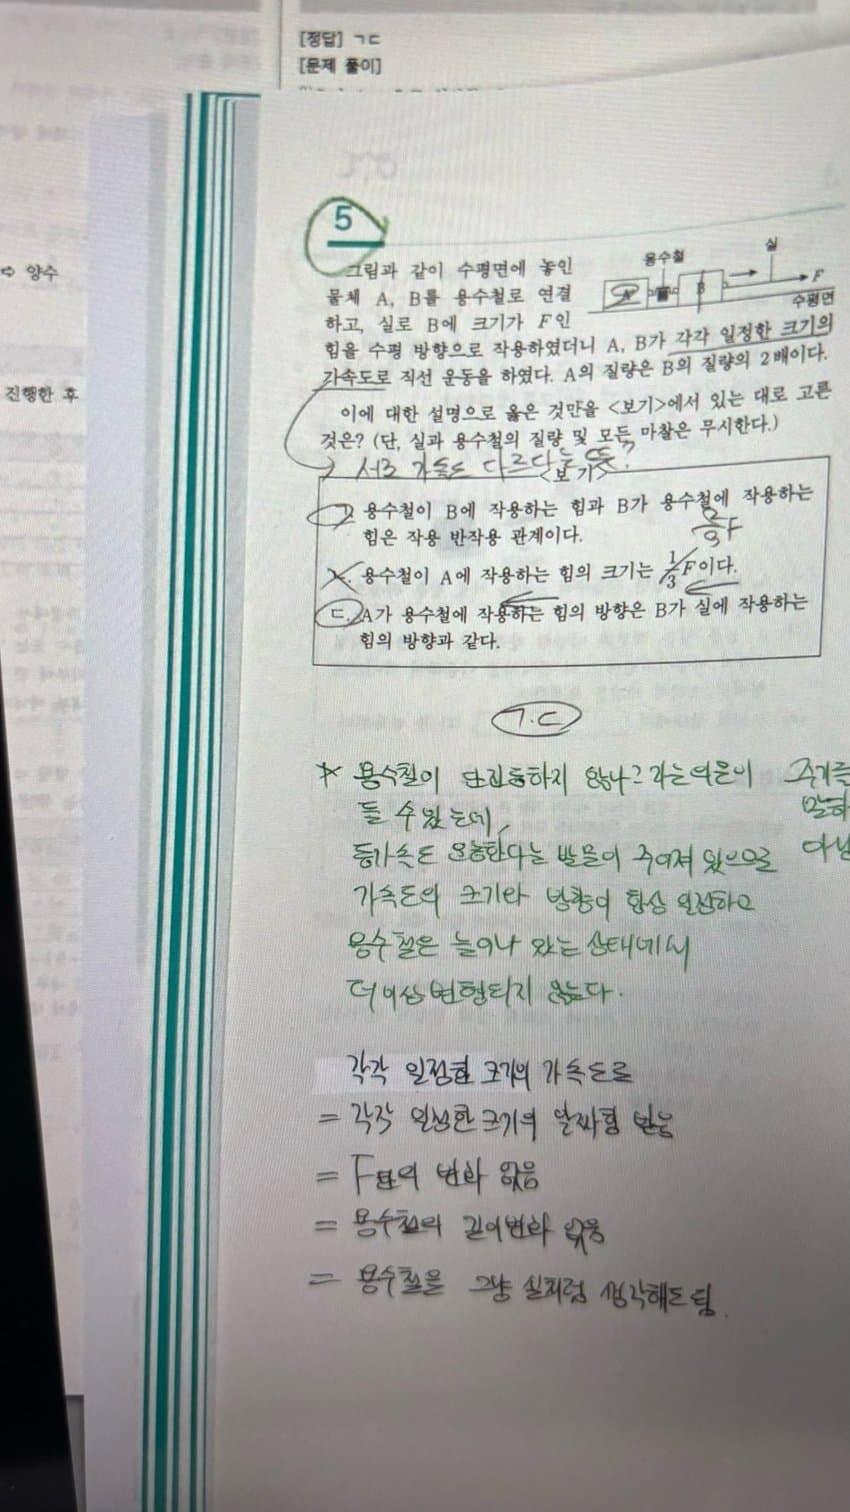 [정답] ㄱㄷ
[문제 풀이]
⇨ 양수
진행한 후
5
그림과 같이 수평면에 놓인
물체 A, B를 용수철로 연결
하고, 실로 B에 크기가 F인
힘을 수평 방향으로 작용하였더니 A, B가 각각 일정한 크기의
가속도로 직선 운동을 하였다. A의 질량은 B의 질량의 2배이다.
용수철
실
A
B
F
수평면
이에 대한 설명으로 옳은 것만을 <보기>에서 있는 대로 고른
것은? (단, 실과 용수철의 질량 및 모든 마찰은 무시한다.)
서로 가속도 다르다는 뜻?
<보기>
ㄱ. 용수철이 B에 작용하는 힘과 B가 용수철에 작용하는
힘은 작용 반작용 관계이다.
2/3F
ㄴ. 용수철이 A에 작용하는 힘의 크기는 1/3F이다.
ㄷ. A가 용수철에 작용하는 힘의 방향은 B가 실에 작용하는
힘의 방향과 같다.
ㄱ.ㄷ
* 용수철이 단진동하지 않나? 라는 의문이
들 수 있는데,
등가속도 운동한다는 발문이 주어져 있으므로
가속도의 크기라 방향이 항상 일정하고
용수철은 늘어나 있는 상태에서
더이상 변형되지 않는다.
주기를
말하
각각 일정한 크기의 가속도로
= 각각 일정한 크기의 알짜힘 받음
= F의 변화 없음
= 용수철의 길이변화 없음
= 용수철을 그냥 실처럼 생각해도 됨.